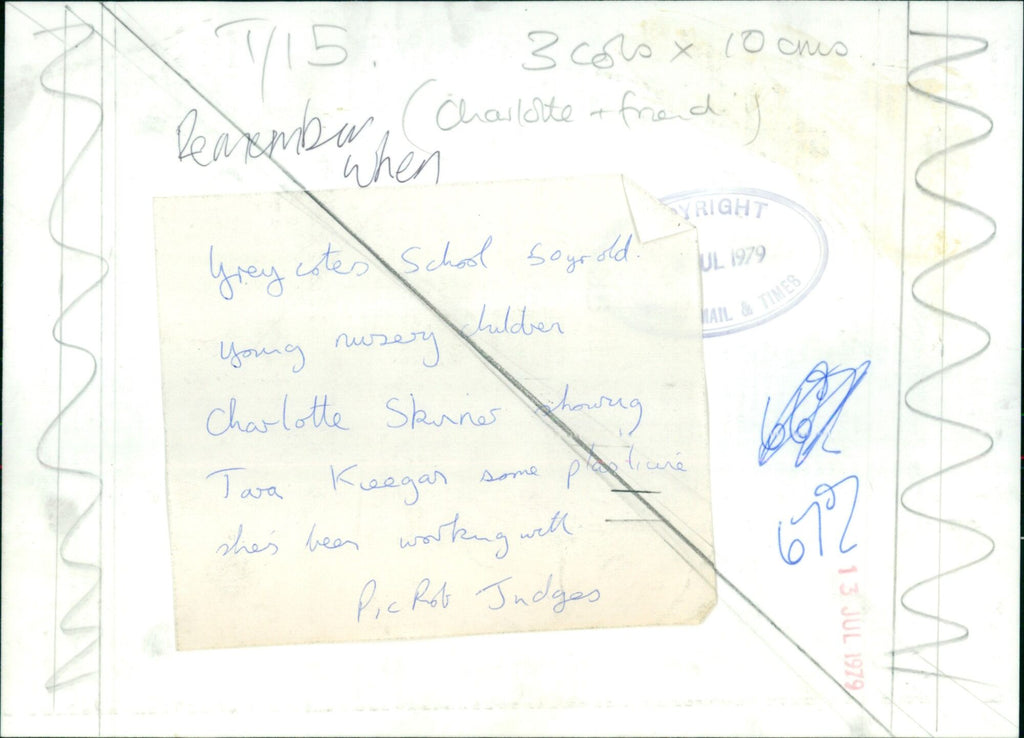 T/15.
3 cols x 10 cms
(Charlotte + friend)
Remember
when
Greycotes School 50 yr old.
young nursery children
Charlotte Skinner showing
Tara Keegan some plasticine
she's been working with
Pic Rob Judges
PYRIGHT
UL 1979
MAIL & TIMES
13 JUL 1979